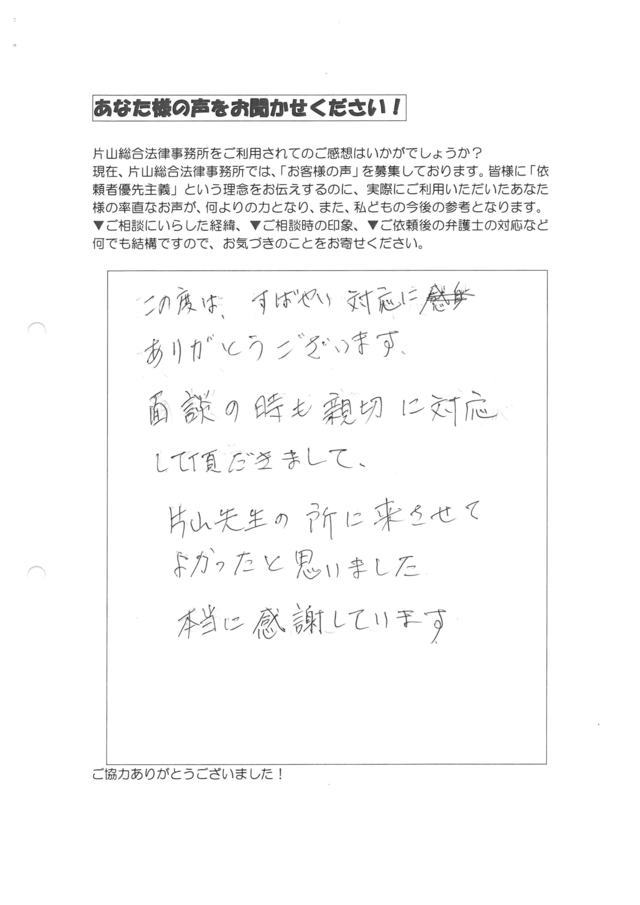 あなた様の声をお聞かせください！
片山総合法律事務所をご利用されてのご感想はいかがでしょうか？
現在、片山総合法律事務所では、「お客様の声」を募集しております。皆様に「依
頼者優先主義」という理念をお伝えするのに、実際にご利用いただいたあなた
様の率直なお声が、何よりの力となり、また、私どもの今後の参考となります。
▼ご相談にいらした経緯、▼ご相談時の印象、▼ご依頼後の弁護士の対応など
何でも結構ですので、お気づきのことをお寄せください。
この度は、すばやい対応に
ありがとうございます、
面談の時も親切に対応
して頂だきまして、
片山先生の所に来させて
よかったと思いました
本当に感謝しています
ご協力ありがとうございました！